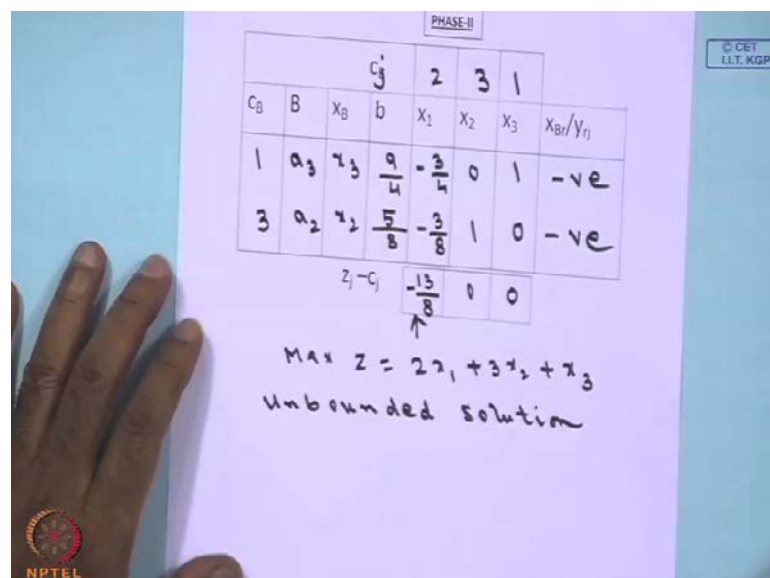 PHASE-II
© CET
I.I.T. KGP
cj 2 3 1
CB B XB b X1 X2 X3 XBr/Yrj
1 a3 x3 9/4 -3/4 0 1 -ve
3 a2 x2 5/8 -3/8 1 0 -ve
zj -cj -13/8 0 0
↑
Max Z = 2x1 + 3x2 + x3
Unbounded solution
NPTEL